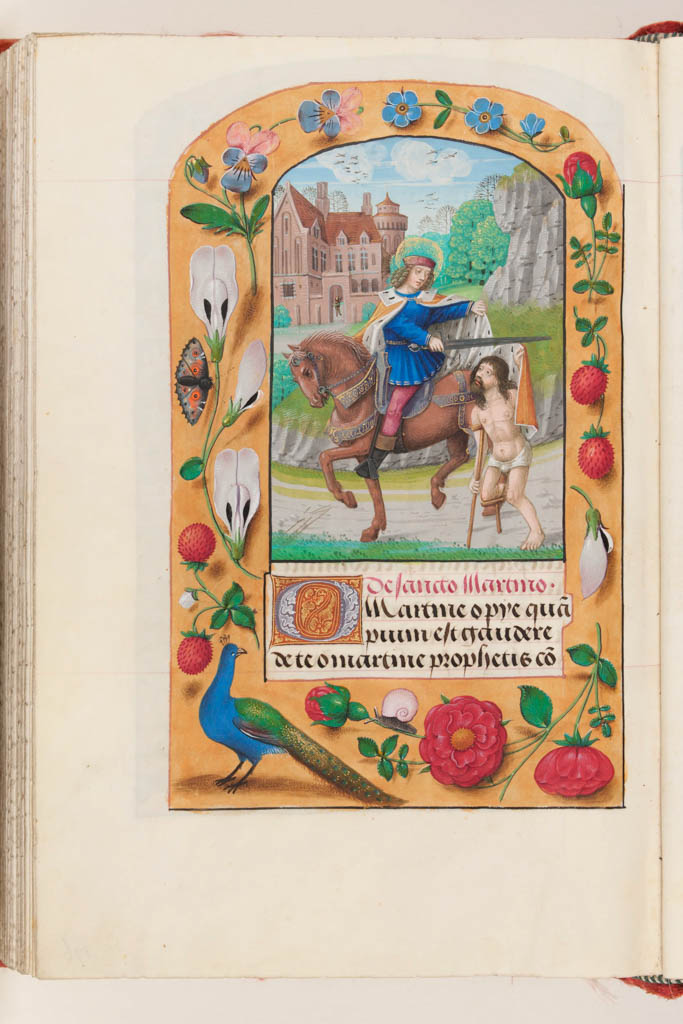 De sancto Martino.
O Martine o pye quā
pium est gaudere
de te o martine prophetis cō